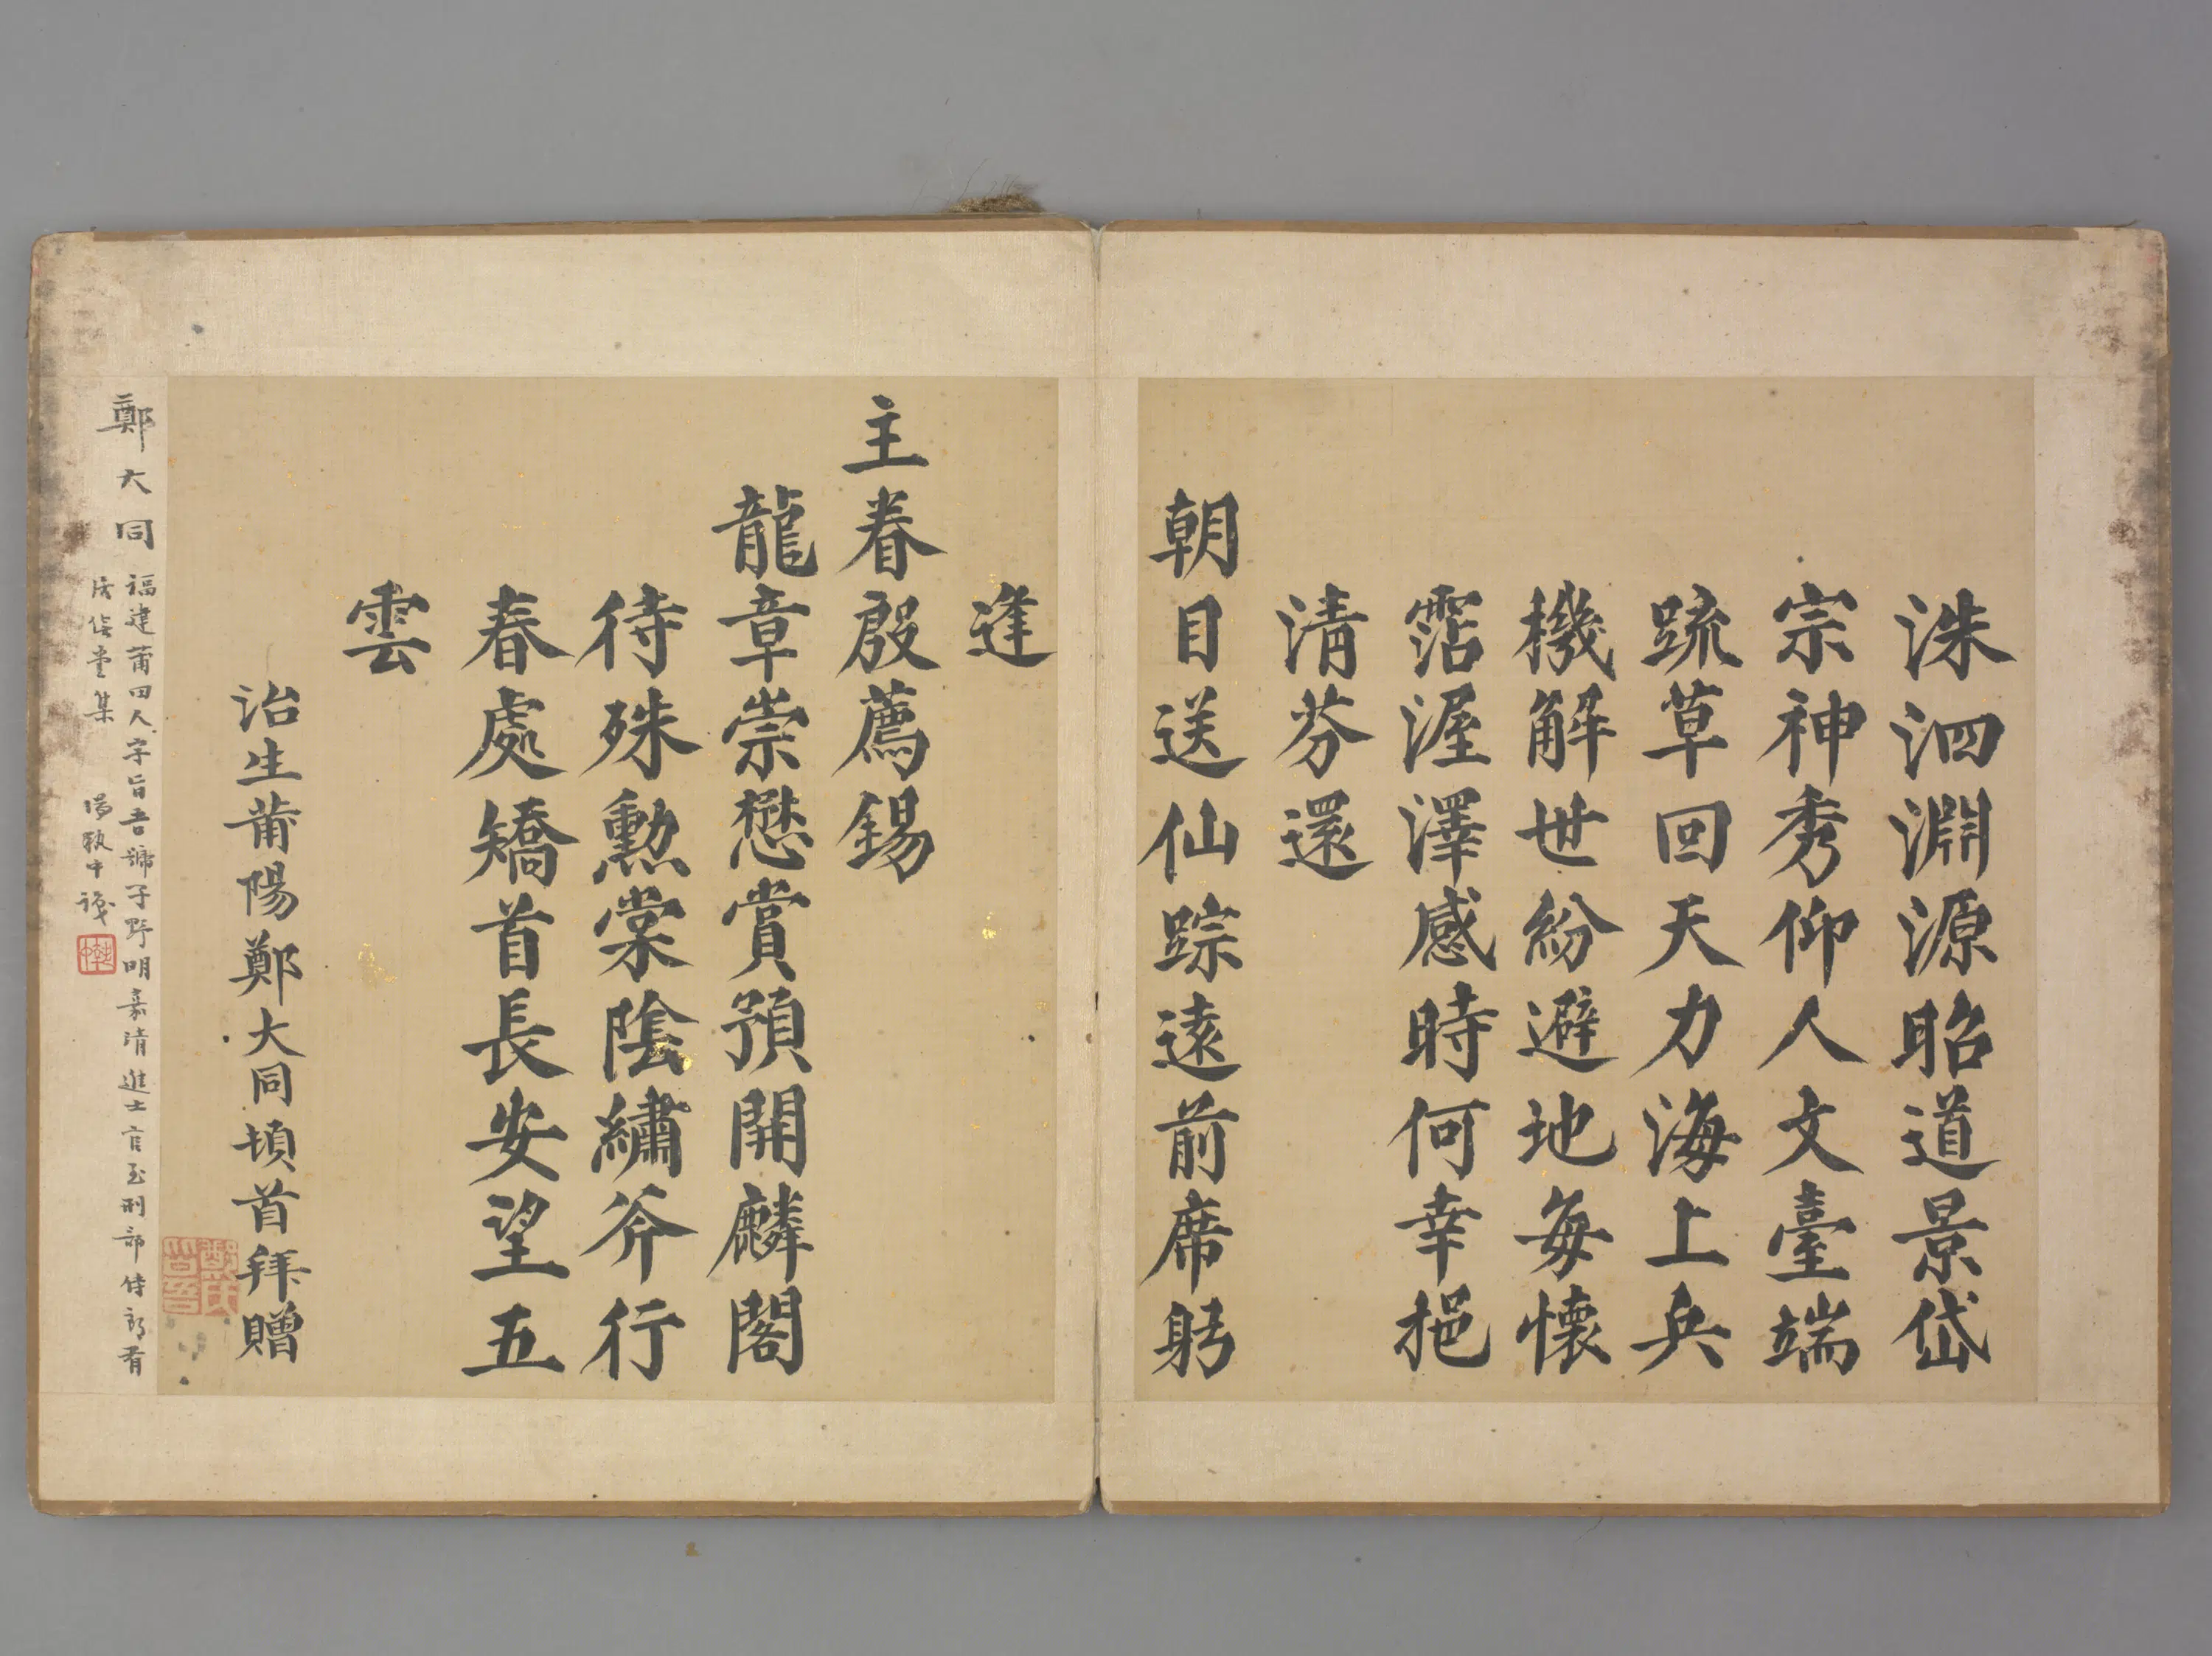 洙泗淵源昭道景岱
宗神秀仰人文臺端
疏草回天力海上兵
機解世紛避地每懷
霑渥澤感時何幸挹
清芬還
朝目送仙踪遠前席躬
逢
主眷殷薦錫
龍章崇懋賞預開麟閣
待殊勳棠陰繡斧行
春處矯首長安望五
雲
治生莆陽鄭大同頓首拜贈
鄭氏
旨吾
鄭大同
福建莆田人字旨吾號子野明嘉靖進士官至刑部侍郎有
居俟堂集 馮執中識